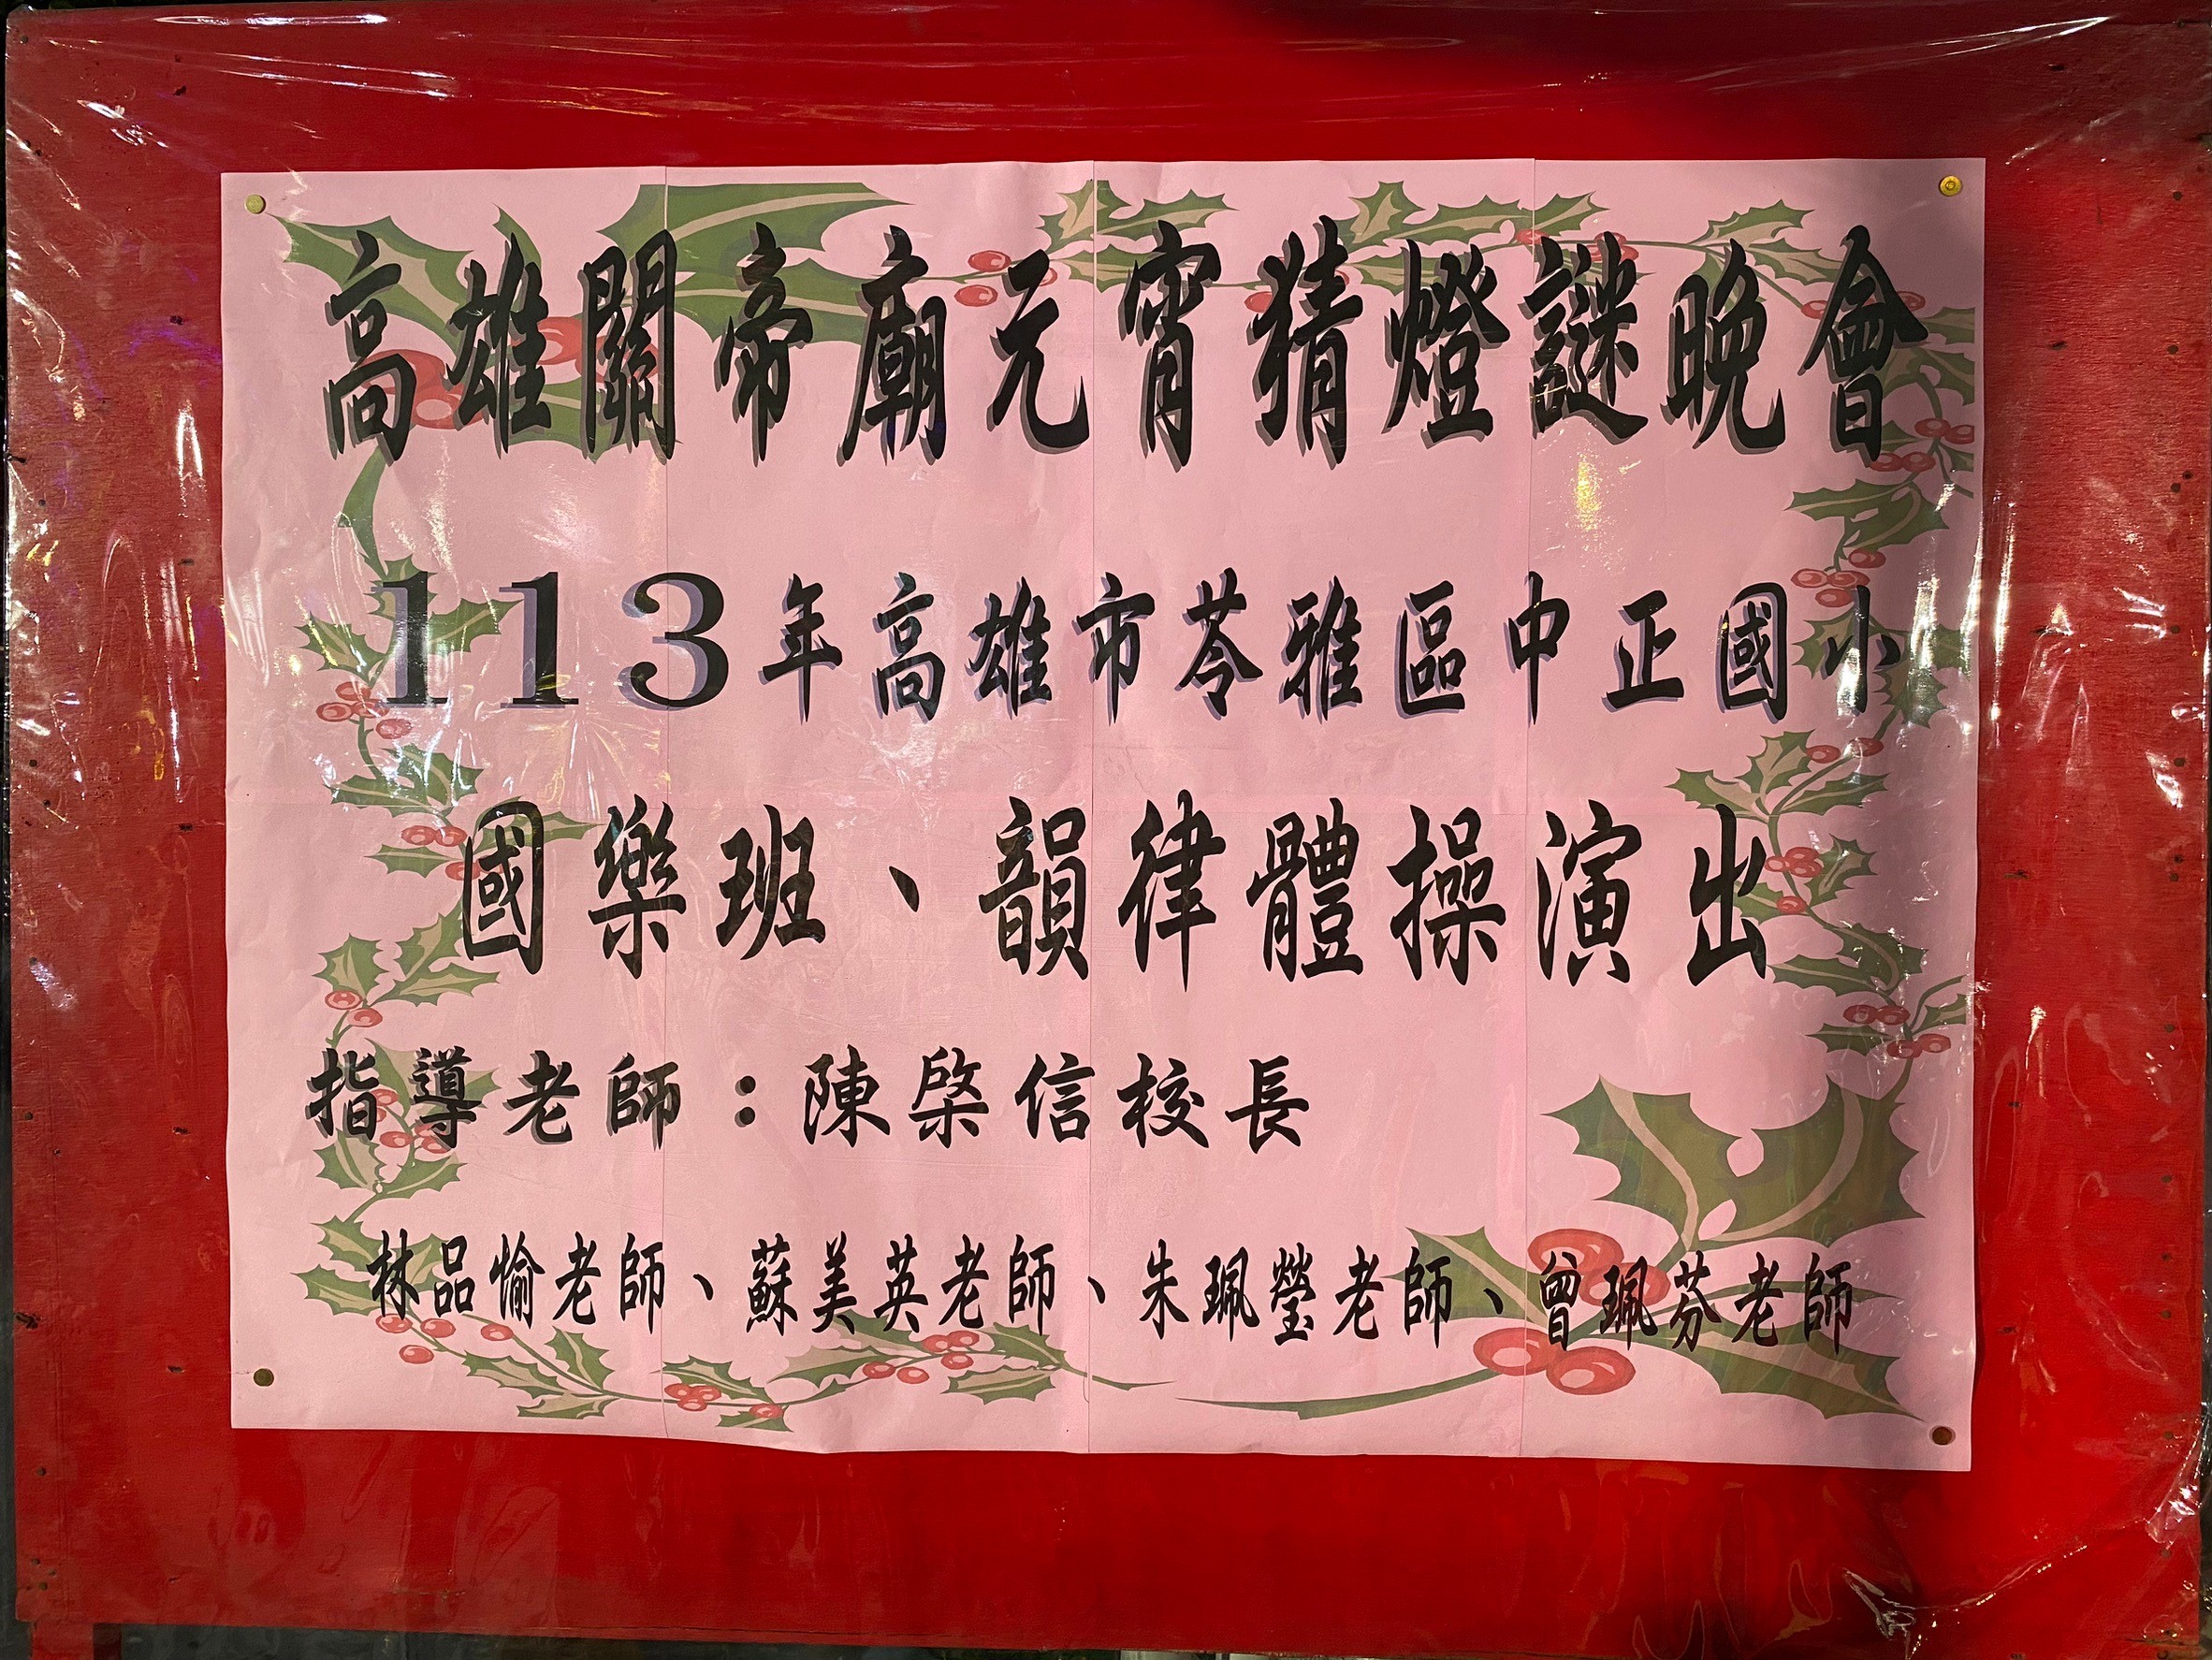 高雄關帝廟元宵猜燈謎晚會
113年高雄市苓雅區中正國小
國樂班、韻律體操演出
指導老師：陳棨信校長
林品愉老師、蘇美英老師、朱珮瑩老師、曾珮芬老師